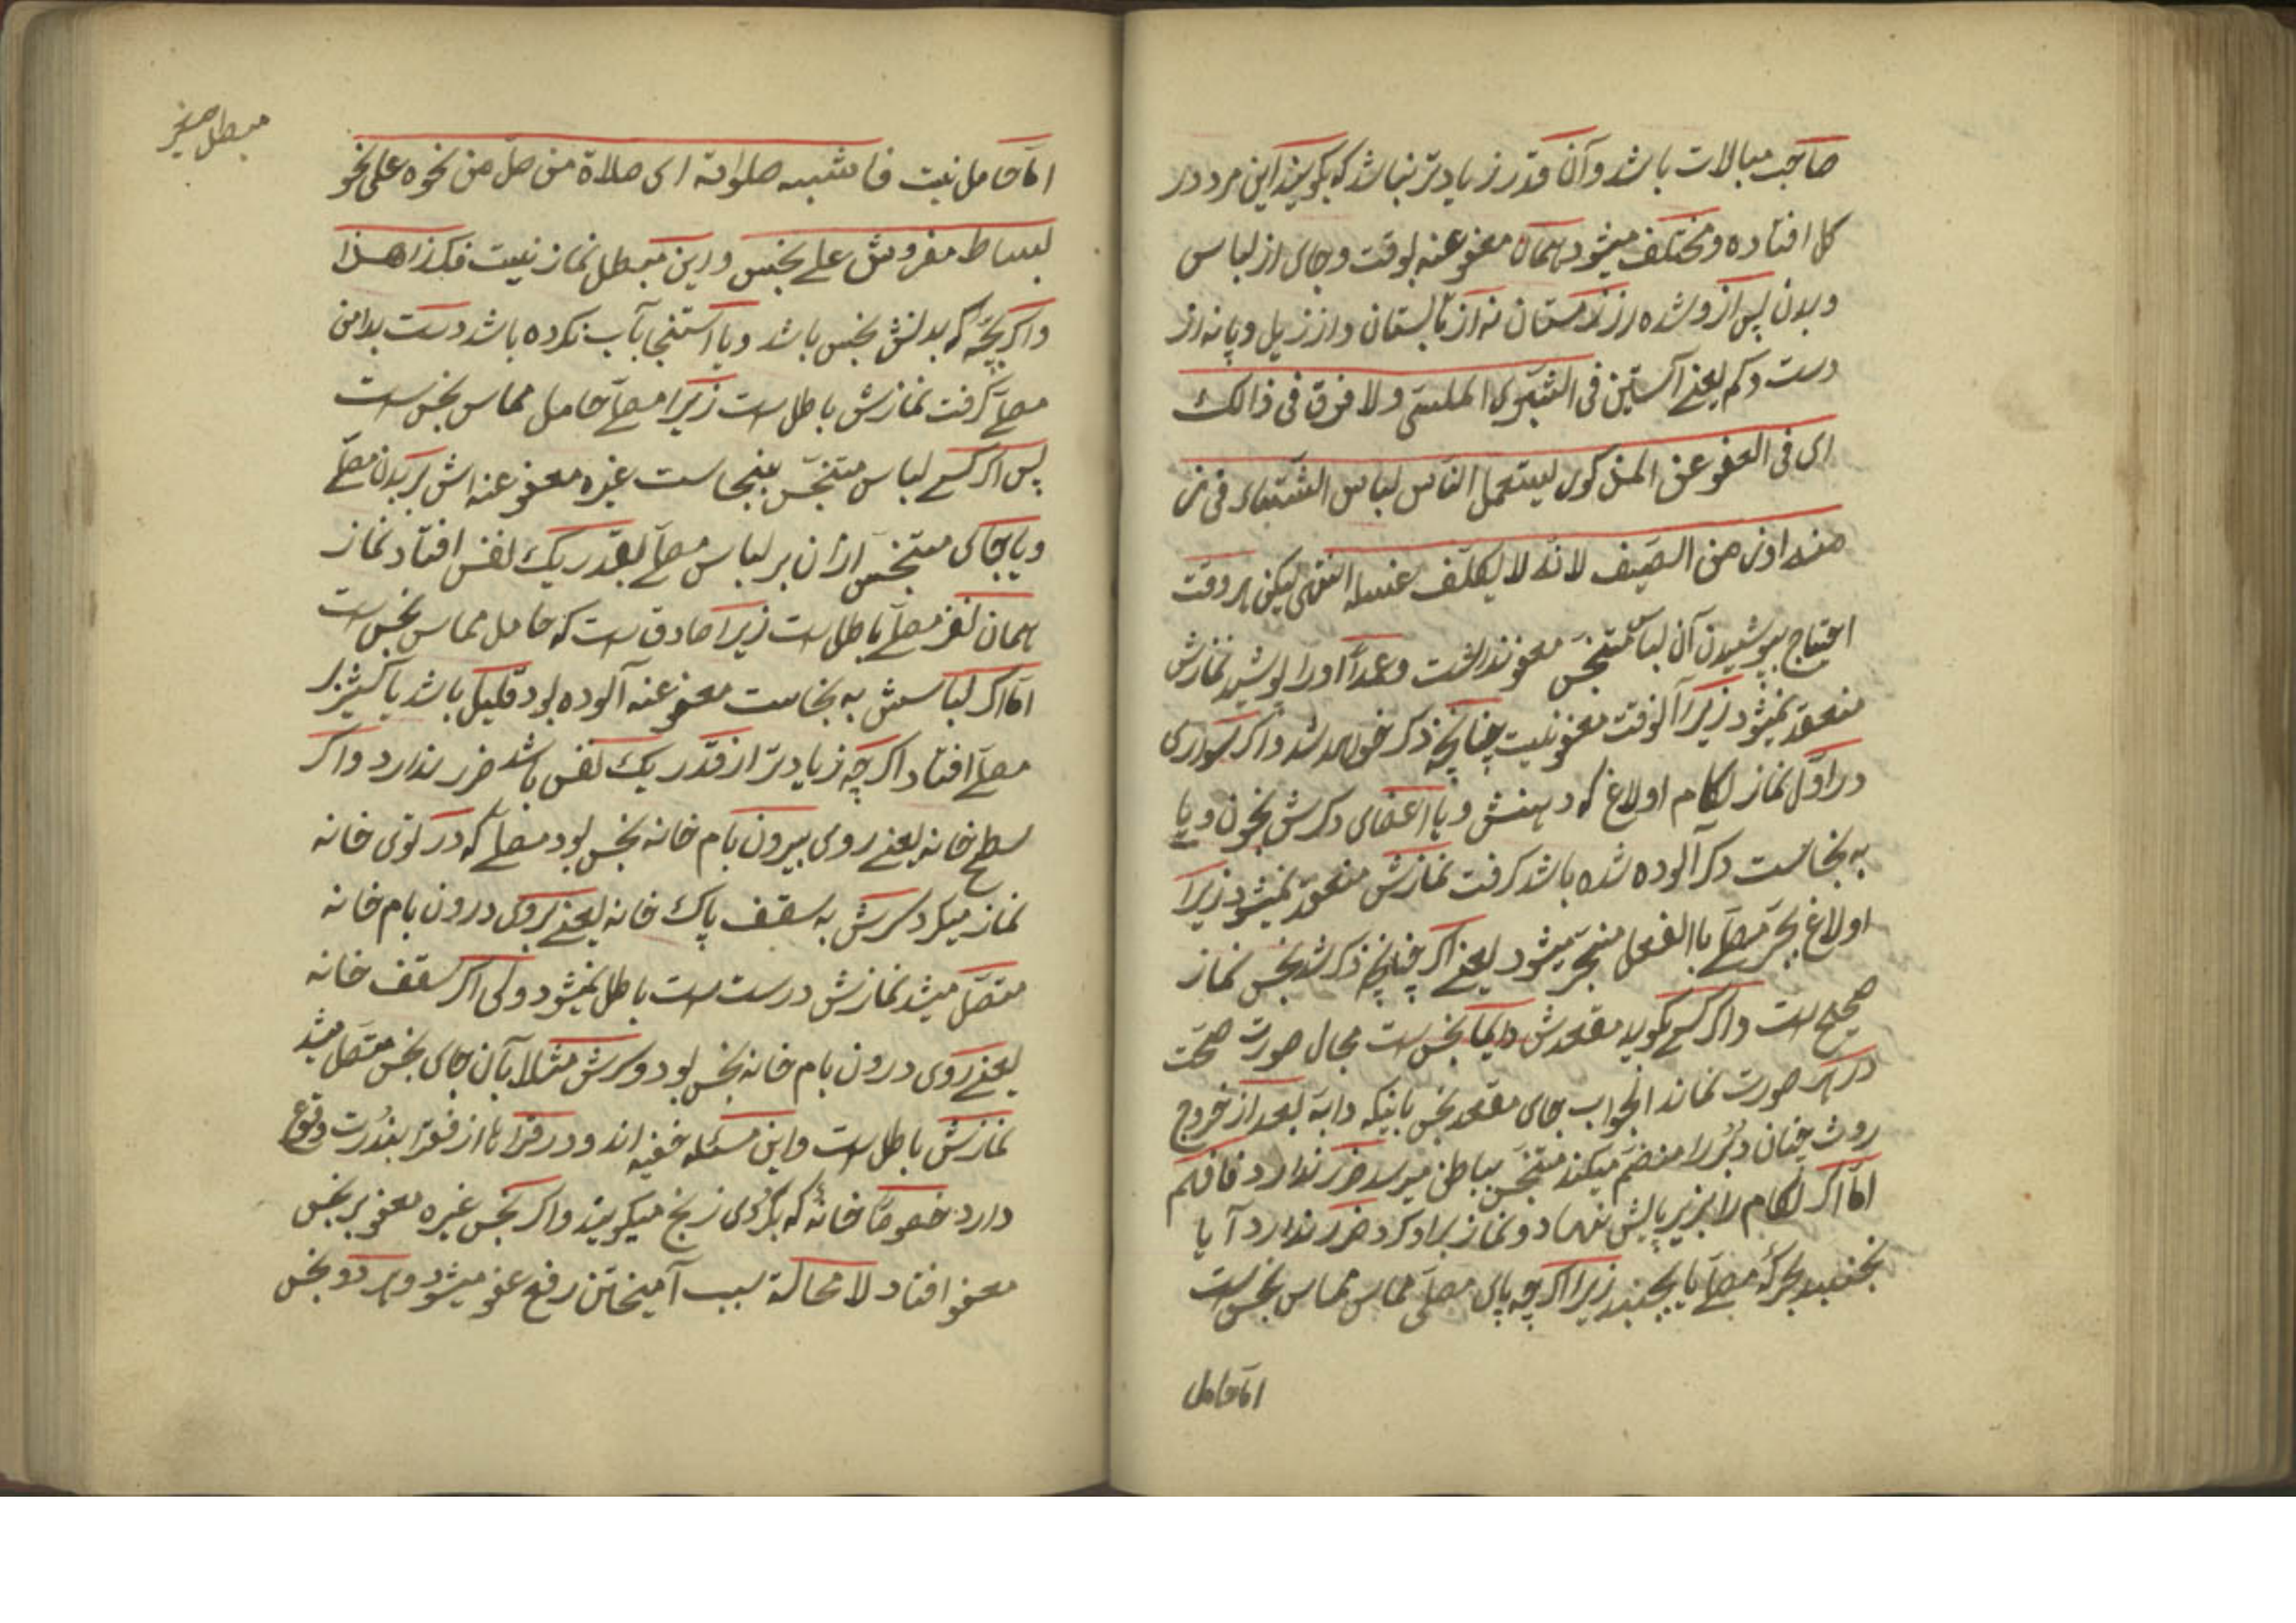 صاحب مبالات باشد و آن قدر زیادتر نباشد که بگویند این مرد در
کل افتاده و مختلف میشود همان معفو عنه بوقت و جای از لباس
و بدن پس از وشده در زمستان نه از تابستان و از زیل و پا نه از
دست و کم یعنے آستین فی الشبری الملسی ولا فرق فی ذالک
ای فی العفو عن المذکور لیستعمل الناس لباس الشتاء فی
منه او زمن الصیف لانه لا یکلف غسله انتهی لیکن هر وقت
احتیاج بپوشیدن آن لباس متنجس معفو نداشت و عمداً او را پوشید نمازش
منعقد نمیشود زیرا آلوقت معفو نیست چنانچه ذکر خواهد شد و اگر سواری
در اول نماز لکام اولاغ که دهنش و یا اعضای دکرش بخون و یا
به نجاست دکر آلوده شده باشد کرفت نمازش منعقد نمیشود زیرا
اولاغ بجر مصلے باالفعل منجر میشود یعنے اکر چنانچه ذکر شد نجس نماز
صحیح است و اکر کسے کوید مقعدش دایما نجس است مجال صورت صحت
در هر صورت نماند الجواب جای مقعد نجس بانیکه دابه بعد از خروج
روث چنان دبر را منضم میکند متنجس بباطن میرسد ضرر ندارد فافهم
اما اکر لکام را بزیر پایش نهاد و نماز برا و کرد ضرر ندارد آیا
بجنبد بحرکه مصلے یا نجنبد زیرا اکرچه پای مصلی مماس مماس نجس است
اما حامل
مبطل صغیر
اما حامل نیست فاشبه صلواته ای صلاة من صل من نحوه علی نحو
بساط مفروش علے نجس و این مبطل نماز نیست فکذا هذا
و اکر بچه که بدنش نجس باشد و یا استنجا بآب نکرده باشد دست بدامن
مصلے کرفت نمازش باطل است زیرا مصلے حامل مماس نجس است
پس اکر کسے لباس متنجس بنجاست غیره معفو عنه اش بر بدن مصلے
و یا جای متنجس ازان بر لباس مصلے بقدر یک نفس افتاد نماز
همان نفر مصلے باطل است زیرا صادق است که حامل مماس نجس است
اما اکر لباسش به نجاست معفو عنه آلوده بود قلیل باشد یا کثیر بر
مصلے افتاد اکرچه زیادتر از قدر یک نفس باشد ضرر ندارد و اکر
سطح خانه یعنے روی بیرون بام خانه نجس بود مصلے که در توی خانه
نماز میکرد سرش به سقف پاک خانه یعنے بروی درون بام خانه
متصل میشد نمازش درست است باطل نمیشود ولی اکر سقف خانه
یعنے روی درون بام خانه نجس بود و سرش مثلا بآن جای نجس متصل میشد
نمازش باطل است و این مسئله خفیه اند و در قراها از فقرا بندرت وقوع
دارد خصوصاً خانه که بکردی زنج میکویند و اکر نجس غیره معفو بر نجس
معفو افتاد لا محالة بسبب آمیختن رفع عفو میشود و هر دو نجس